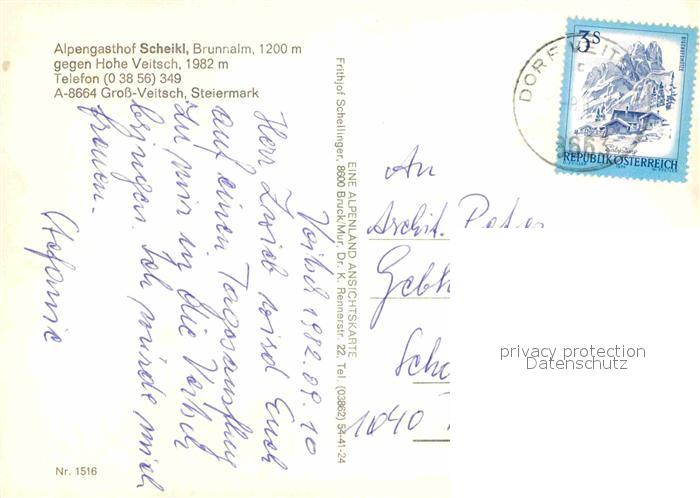 Alpengasthof Scheikl, Brunnalm, 1200 m
gegen Hohe Veitsch, 1982 m
Telefon (0 38 56) 349
A-8664 Groß-Veitsch, Steiermark
Veitsch 1982.09.10
Herr Zwieb wird Euch
auf einen Tagesausflug
zu mir in die Veitsch
bringen. Ich würde mich
freuen.
Stefanie
Nr. 1516
EINE ALPENLAND ANSICHTSKARTE
Frithjof Schellinger, 8600 Bruck/Mur, Dr. K. Rennerstr. 22, Tel. (03862) 54-41-24
DORF VEIT
866
3 S
REPUBLIK ÖSTERREICH
An
Archit. Peter
Gebh
Sch
1040
privacy protection
Datenschutz